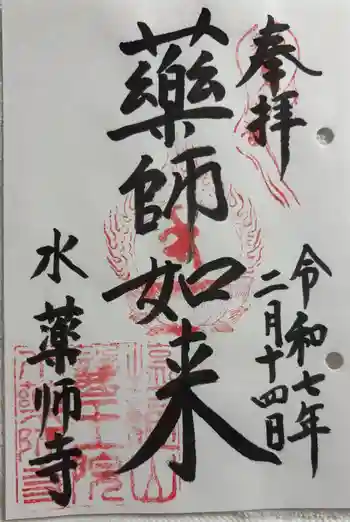 奉拝
令和七年
二月十四日
藥師如来
水薬師寺